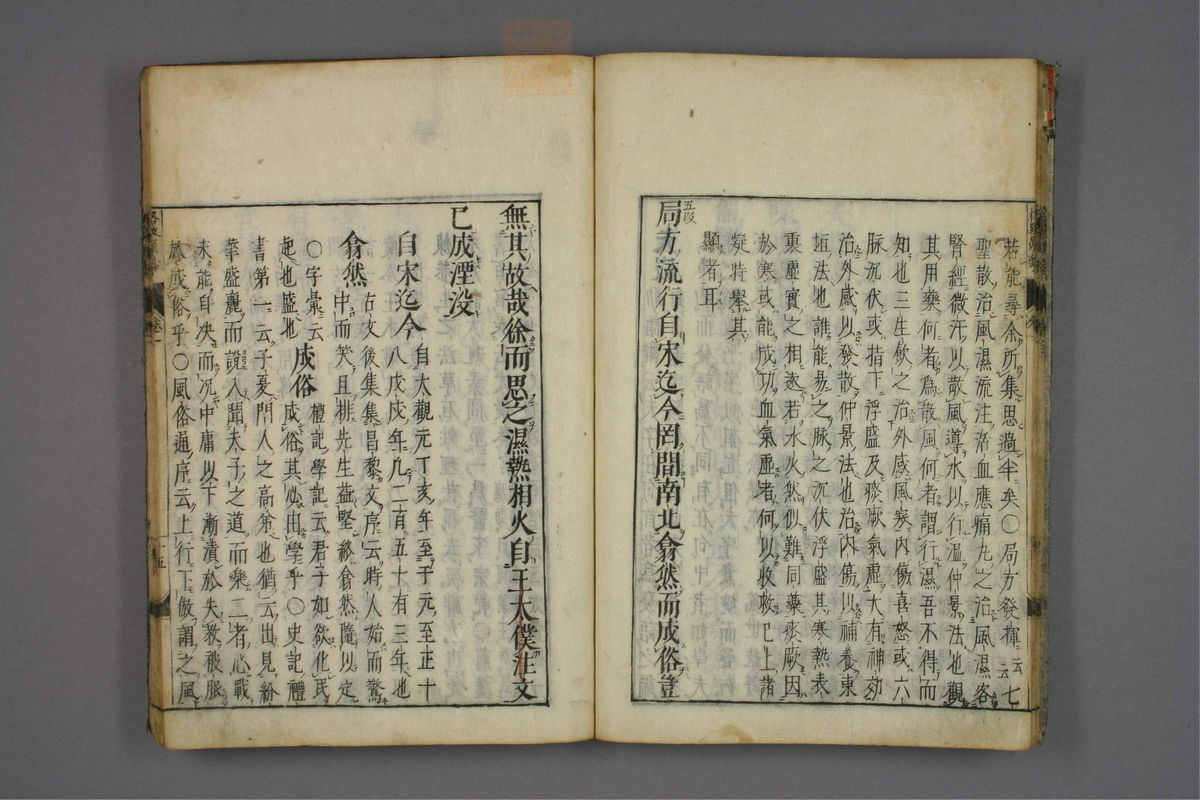 若能尋余所集思過半矣〇局方發揮云七
聖散治風濕流注活血應痛丸之治風濕客
腎經微汗以散風導水以行溫仲景法也觀
其用藥何者為散風何者謂行濕吾不得而
知也三生飲之治外感風寒內傷喜怒或六
脉沉伏或指下浮盛及痰厥氣虛大有神効
治外感以發散仲景法也治內傷以補養東
垣法也誰能易之脉之沉伏浮盛其寒熱表
裏虛實之相遠若水火然似難同藥痰厥因
於寒或能成功血氣虛者何以收救已上諸
疑特舉其
顯者耳
五段
局方流行自宋迄今罔間南北翕然而成俗豈
無其故哉徐而思之濕熱相火自王太僕注文
已成湮没
自宋迄今
自太觀元丁亥年至于元至正十
八戊戌年凡二百五十有三年也
翕然
古文後集集昌黎文序云時人始而驚
中而笑且排先生益堅終翕然隨以定
〇字彙云
起也盛也
成俗
禮記學記云君子如欲化民
成俗其必由學乎〇史記禮
書第一云子夏門人之高弟也猶云出見紛
華盛麗而說入聞夫子之道而樂二者心戰
未能自决而况中庸以下漸漬於失教被服
於成俗乎〇風俗通序云上行下倣謂之風
卷一
十五